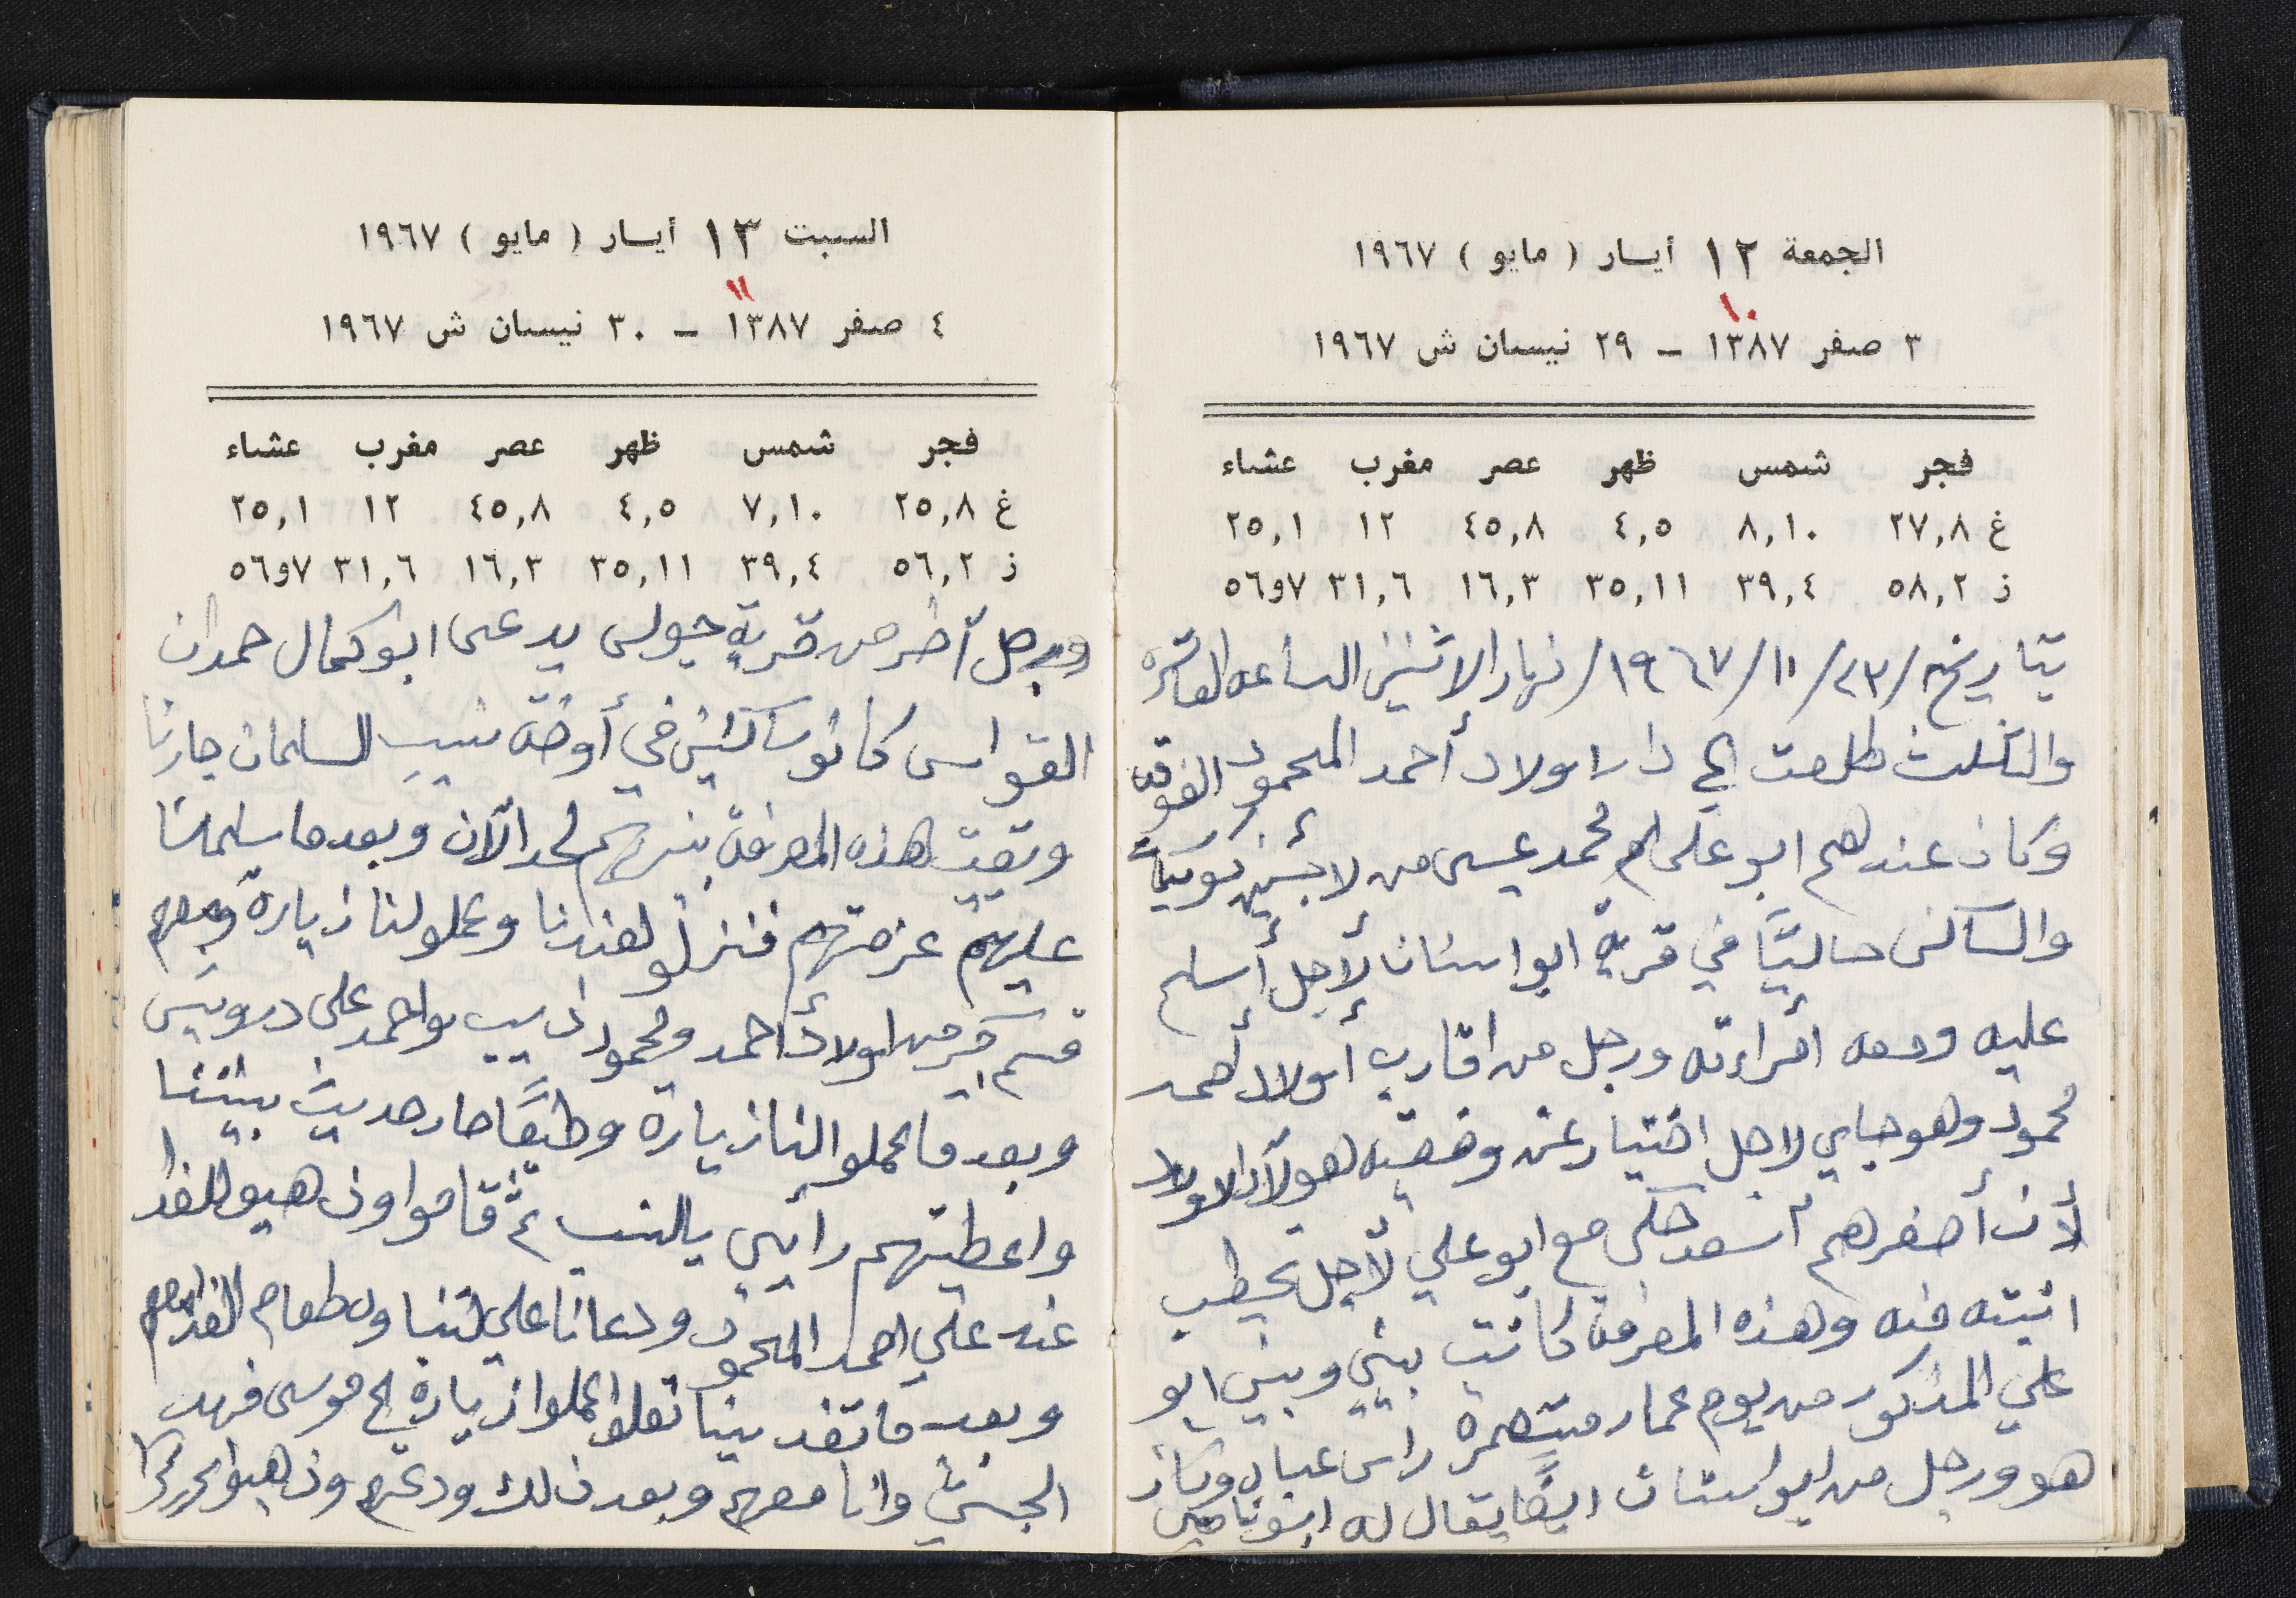 الجمعة ١٢ أيار ( مايو ) ١٩٦٧
١٠
٣ صفر ١٣٨٧ – ٢٩ نيسان ش ١٩٦٧
فجر شمس ظهر عصر مغرب عشاء
غ ٢٧,٨ ٨,١٠ ٤,٥ ٤٥,٨ ١٢ ٢٥,١
ز ٥٨,٢ ٣٩,٤ ٣٥,١١ ١٦,٣ ٣١,٦ ٧و٥٦
بتاريخ /٢٣/ ١٠/ ١٩٦٧/ نهار الاثنين الساعه العاشرة
والثلث طلعت الى دار اولاد أحمد المحمود الفوقه
وكان عندهم ابو علي محمد عيسى من لاجئين كويكات
والساكن حاليًّا في قرية ابو اسنان لأجل أسلم
عليه ومعه امرأته ورجل من اقارب أولاد أحمد
محمود وهو جاي لاجل اختيار عن وضعيه هولاء الاولاد
لأن أصغرهم أسعد حكى مع ابو علي لأجل يخطب
ابنته منه وهذه المعرفة كانت بيني وبين ابو
علي المذكور من يوم عمار راس عباد وكان
هو ورجل من ابو اسنان ايضًا يقال له ابو
السبت ١٣ أيار ( مايو ) ١٩٦٧
١١
٤ صفر ١٣٨٧ – ٣٠ نيسان ش ١٩٦٧
فجر شمس ظهر عصر مغرب عشاء
غ ٢٥,٨ ٧,١٠ ٤,٥ ٤٥,٨ ١٢ ٢٥,١
ز ٥٦,٢ ٣٩,٤ ٣٥,١١ ١٦,٣ ٣١,٦ ٧و٥٦
ورجل آخر من قرية جولس يدعى ابو كمال حمدان
القواس كانو ساكنين في أوضة نسيب السلمان جارنا
وبقيت هذه المعرفة بينهم لحد الآن وبعدما سلمنا
عليهم عزمتهم فنزلو لعندنا وعملو لنا زيارة ومعهم
قسم كبير من اولاد أحمد ومحمود ذيب واحمد علي درويش
وبعدما عملوا لنا زيارة وطبعًا صار حديث بيننا
واعطيتهم رأيي بالنسب ثم قاموا وذهبو للغدا
عند علي احمد المحمود ودعانا على تناول طعام الغدا معهم
وبعد ما تغدينا نقلوا عملوا زيارة الى موسى فهد
الجشي وانا معهم وبعد ذلك ودعتهم وذهبوا